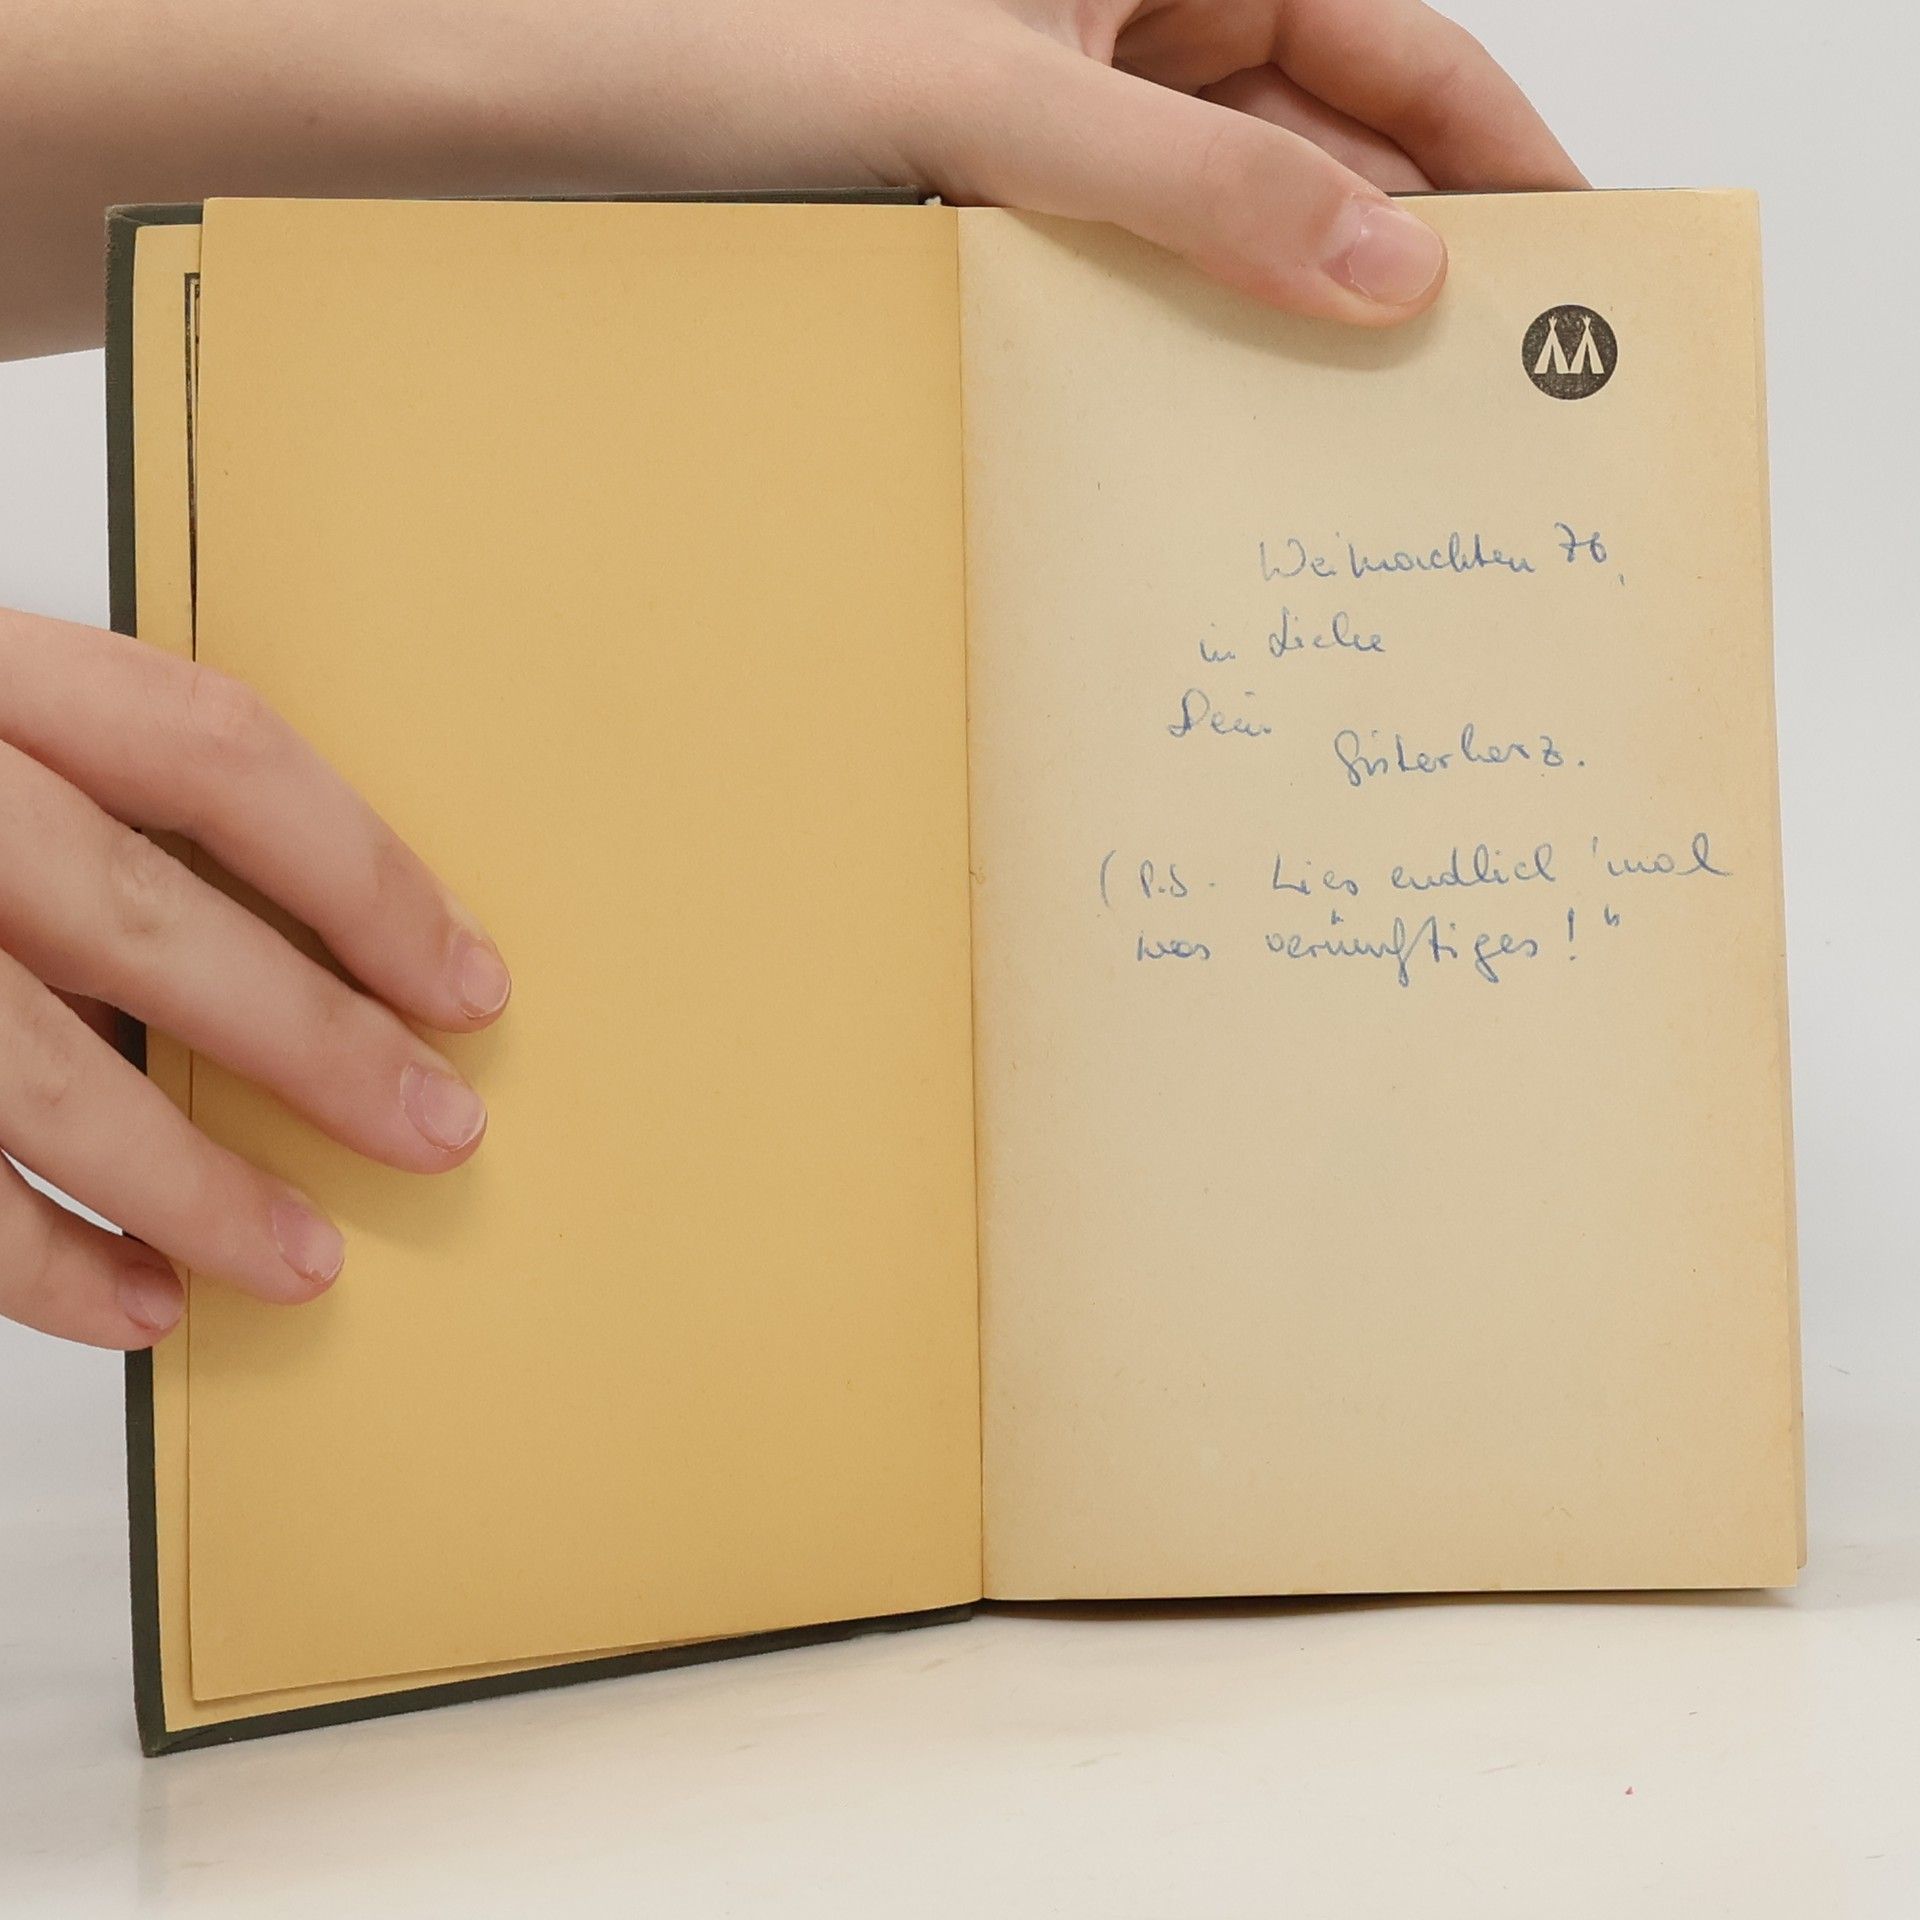 M
Weihnachten 76,
in Liebe
Dein
Sisterherz.
(P.S. Lies endlich 'mal
was verünftiges! "